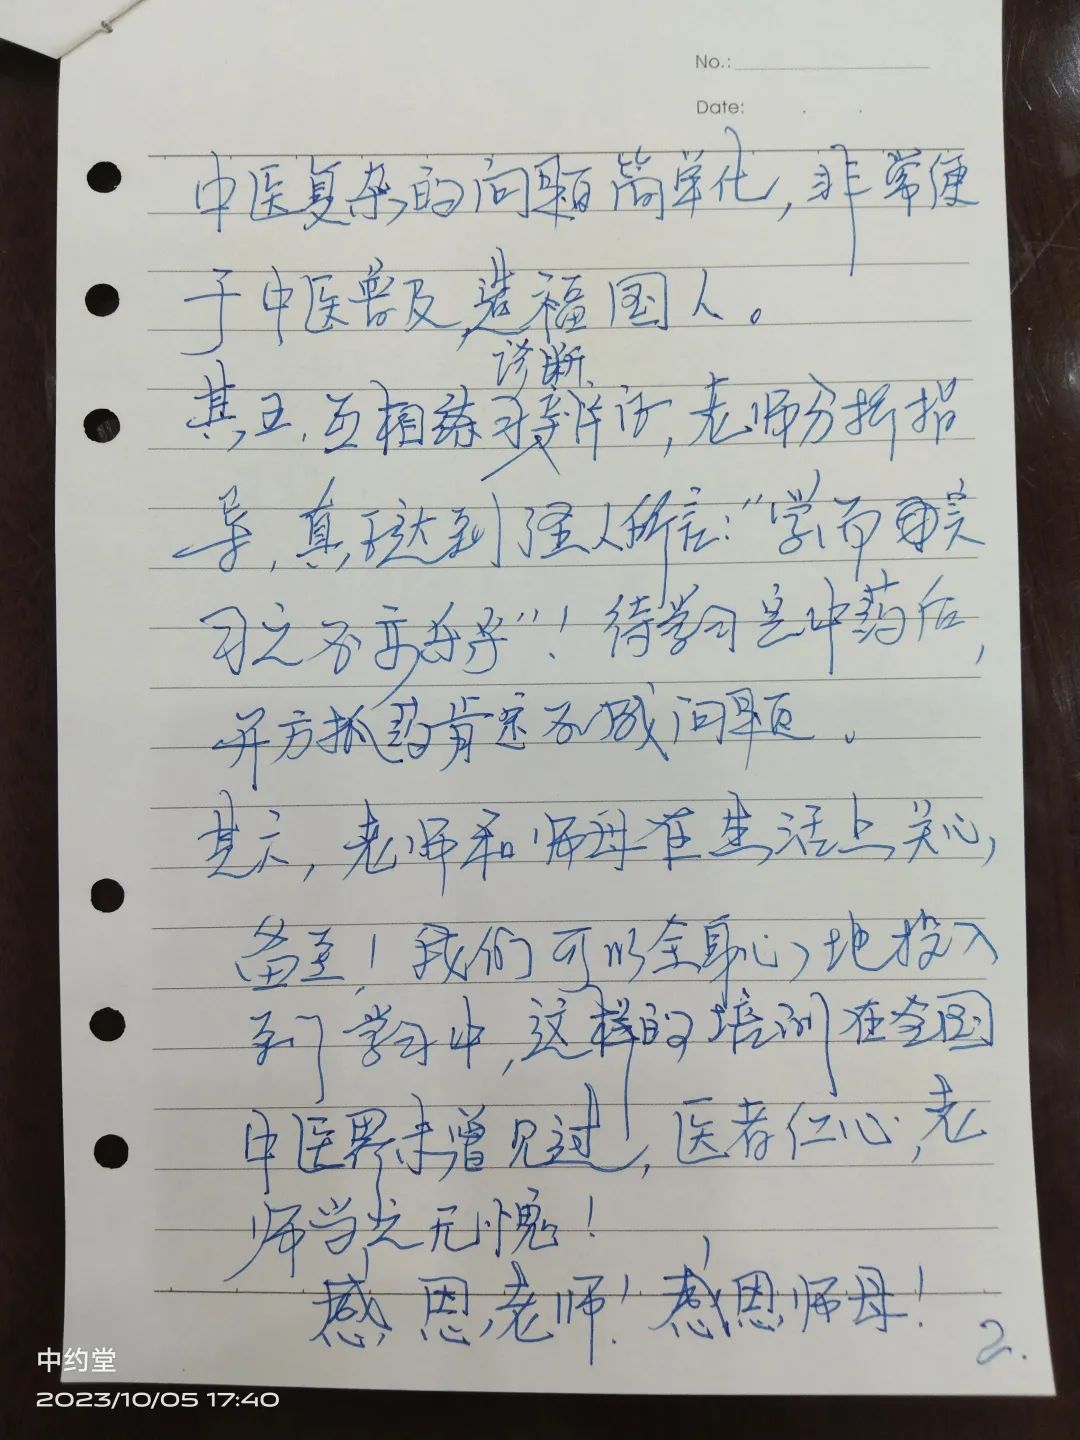 No.:
Date:
中医复杂的问题简单化，非常便
于中医普及，造福国人。
诊断
其五.互相练习辨证，老师分析指
导，真正达到了圣人所言："学而时
习之不亦乐乎"！待学习完中药后，
开方抓药肯定不成问题。
其六，老师和师母在生活上关心，
备至！我们可以全身心地投入
到学习中，这样的培训在全国
中医界未曾见过，医者仁心，老
师当之无愧！
感恩老师！感恩师母！
2.
中约堂
2023/10/05 17:40